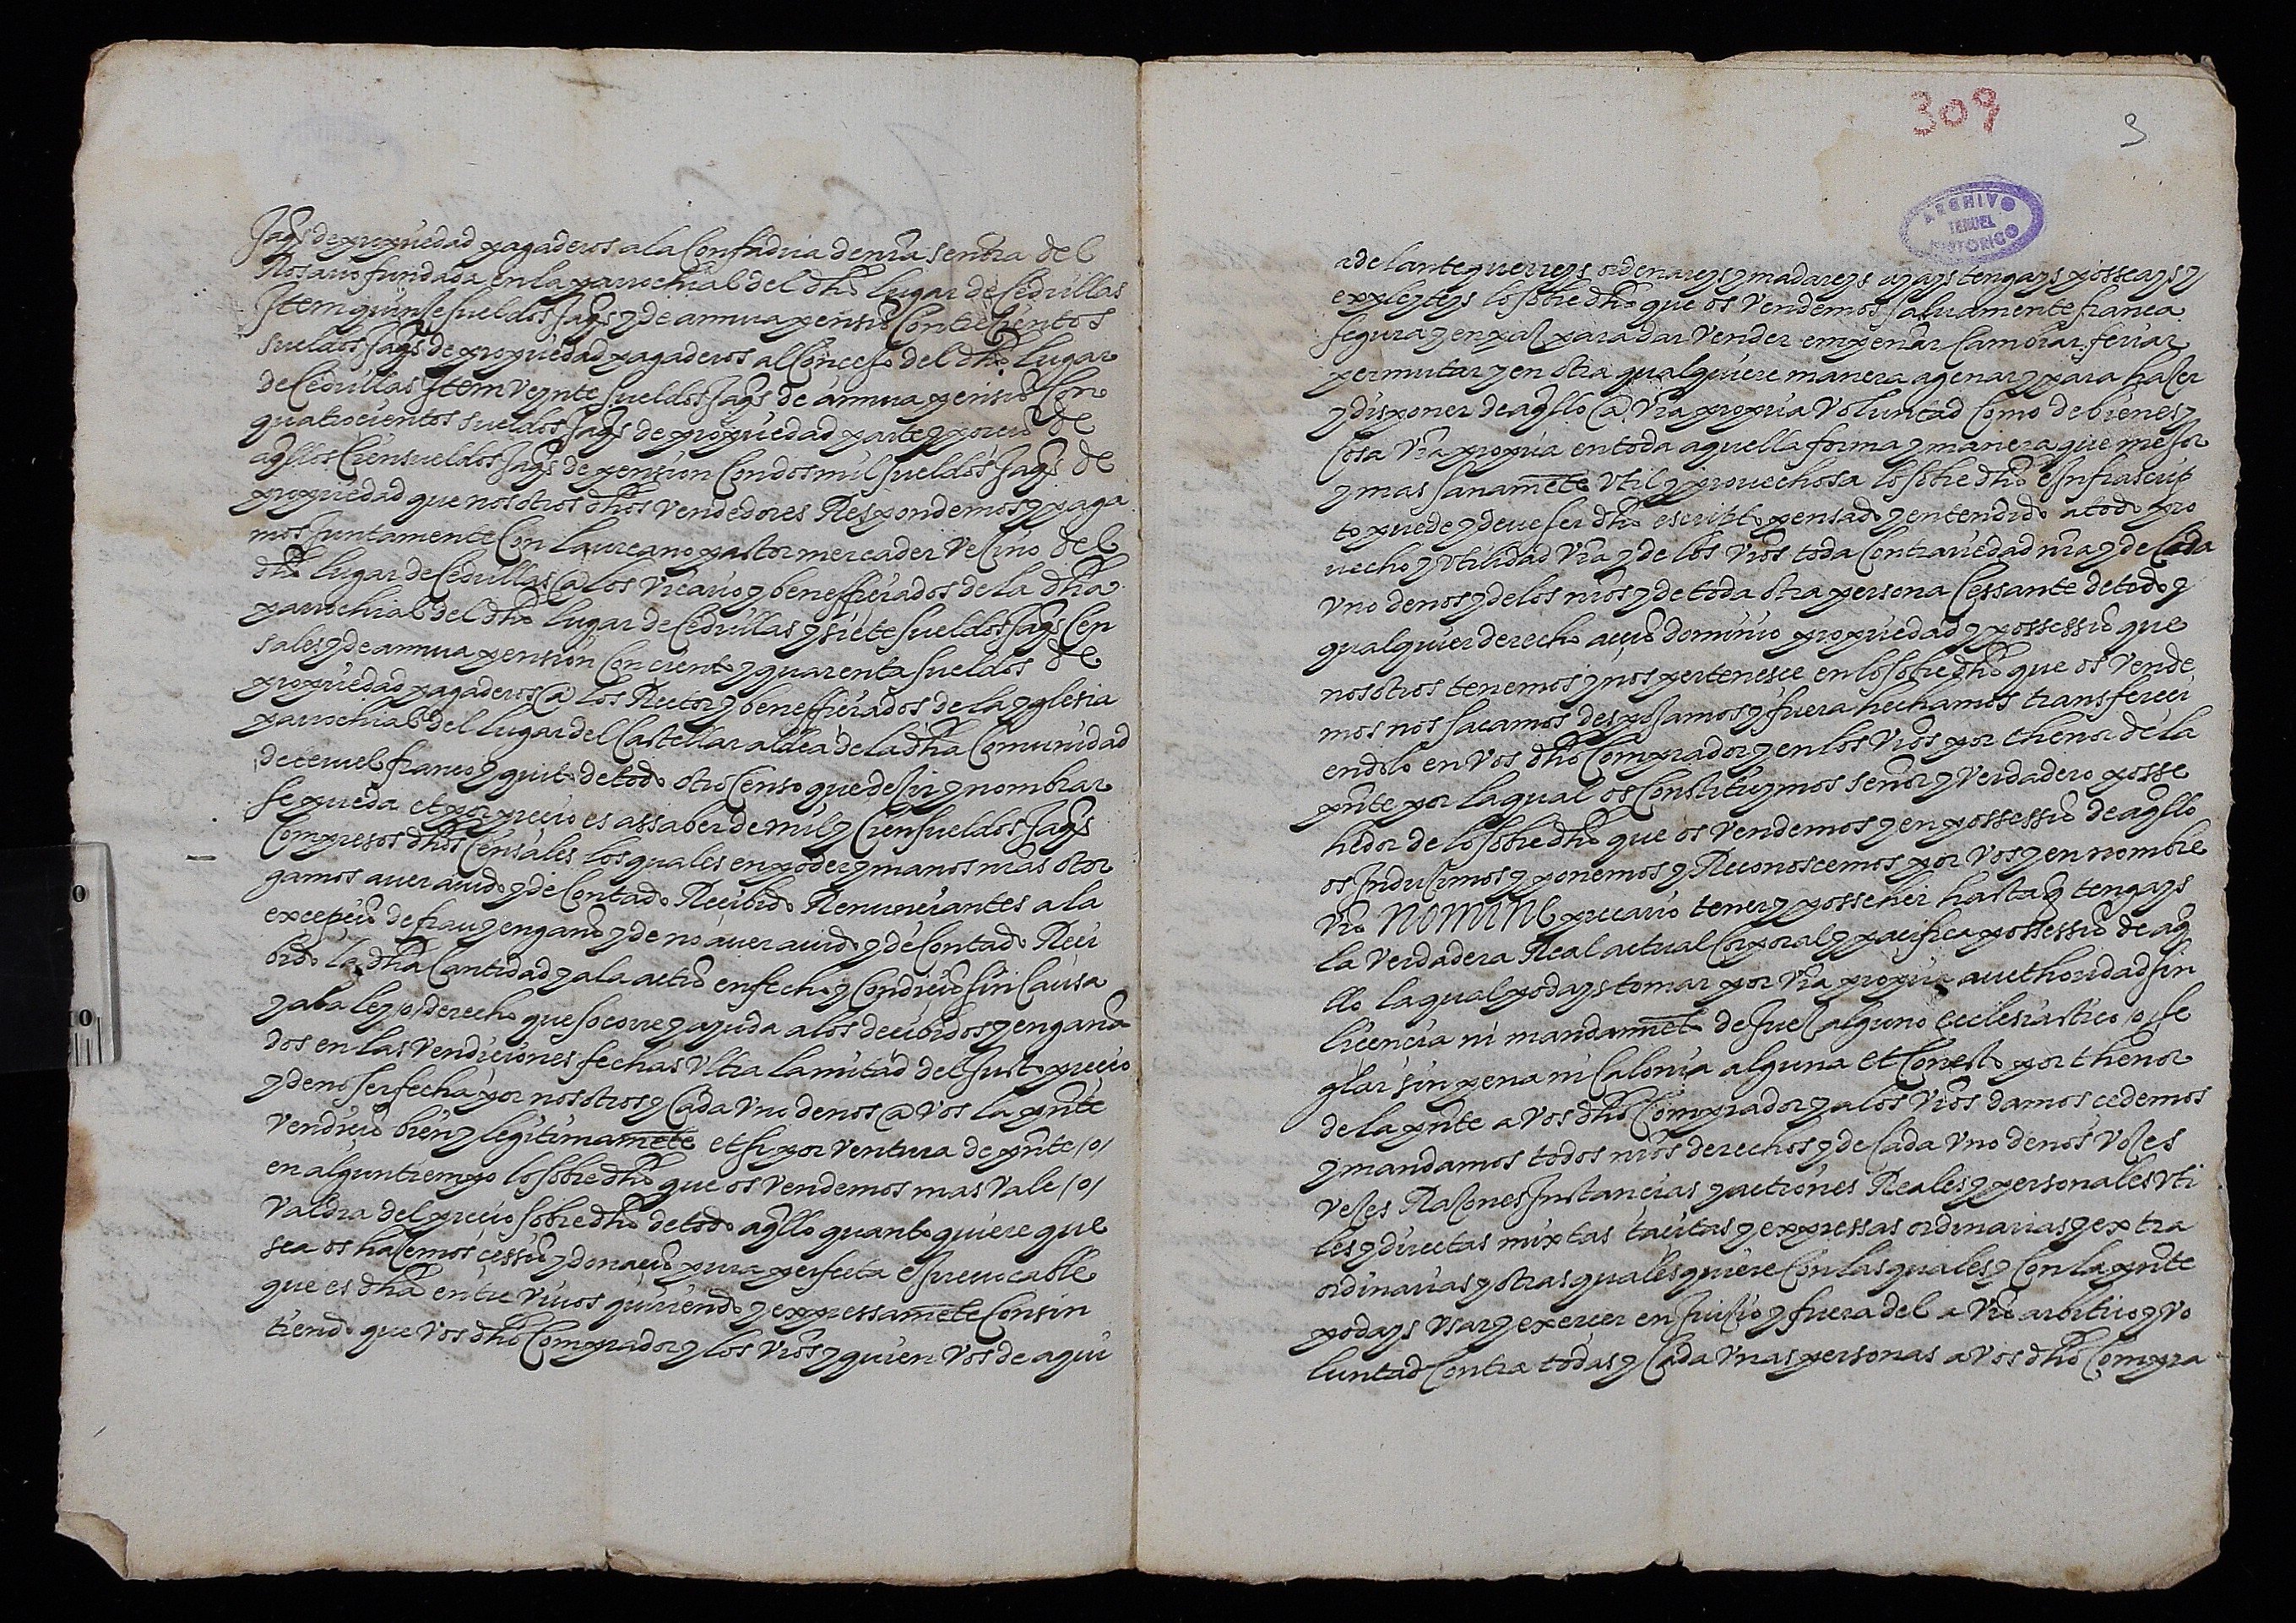 Jaqs de propiedad pagaderos a la Confadria de nra señora del
Rosario fundada en la parrochial del dho lugar de Cedrillas
Item quinse sueldos Jaqs y de annua pensio con trecientos
sueldos Jaqs de propiedad pagaderos al Concejo del dho lugar
de Cedrillas Item veynte sueldos Jaqs de annua pensio con
quatrocientos sueldos Jaqs de propiedad parte y porcio de
aqllos Cien sueldos Jaqs de pension con dos mil sueldos Jaqs de
propiedad que nosotros dhos vendedores Respondemos y paga
mos Juntamente con Laureano pastor mercader vecino del
dho lugar de Cedrillas @ los vicario y benefficiados de la dha
parrochial del dho lugar de Cedrillas y siete sueldos Jaqs Cen
sales y de annua pension con ciento y quarenta sueldos de
propiedad pagaderos @ los Rector y benefficiados de la yglesia
parrochial del lugar del Castellar aldea de la dha Comunidad
de teruel franco y quito de todo otro Censo que desir y nombrar
se pueda et por precio es assaber de mil y Cien sueldos Jaqs
Compresos dhos Censales los quales en poder y manos nras otor
gamos aver avido y de Contado Recibido Renunciantes a la
excepcio de frau y engaño y de no aver avido y de Contado Reci
bido la dha Cantidad y a la actio en fecho y Condicio sin Causa
y a la ley /o/ derecho que socorre y ayuda a los decibidos y engaña
dos en las vendiciones fechas ultra la mitad del Justo precio
y de no ser fecha por nosotros y Cada uno de nos @ vos la pnte
vendicio bien y legitimamete et si por ventura de pnte /o/
en algun tiempo lo sobredho que os vendemos mas vale /o/
valdra del precio sobredho de todo aqllo quanto quiere que
sea os hasemos cessio y donacio pura perfecta e Irrevocable
que es dha entre vivos quiriendo y expressamete Consin
tiendo que vos dho Comprador y los vros y quien vos de aqui
309
3
ARCHIVO
TERUEL
HISTORICO
adelante querreys ordenareys y madareys ayays tengays posseays y
expleyteys lo sobredho que os vendemos salvamente franca
segura y en paz para dar vender empeñar Cambiar feriar
permutar y en otra qualquiere manera agenar y para haser
y disponer de aqllo @ vra propia voluntad Como de bienes y
Cosa vra propia en toda aquella forma y manera que mejor
y mas sanamete util y provechosa lo sobredho e Infrascrip
to puede y deve ser dho escripto pensado y entendido a todo pro
vecho y utilidad vra y de los vros toda Contrariedad nra y de Cada
uno de nos y de los nros y de toda otra persona Cessante de todo y
qualquier derecho accio dominio propiedad y possessio que
nosotros tenemos y nos pertenesce en lo sobredho que os vende
mos nos sacamos desposamos y fuera hechamos transfiri
endolo en vos dho Comprador y en los vros por thenor de la
pnte por la qual os Constituymos señor y verdadero posse
hedor de lo sobredho que os vendemos y en possessio de aqllo
os Indusimos y ponemos y Reconoscemos por vos y en nombre
vro NOMINE precario tener y possehir hasta q tengays
la verdadera Real actual Corporal y pacifica possessio de aq
llo la qual podays tomar por vra propia aucthoridad sin
licencia ni mandamieto de Juez alguno ecclesiastico /o/ se
glar sin pena ni Calonia alguna et Con esto por thenor
de la pnte a vos dho Comprador y a los vros damos cedemos
y mandamos todos nros derechos y de Cada uno de nos voses
veses Rasones Instancias y actiones Reales y personales uti
les y directas mixtas tacitas y expressas ordinarias y extra
ordinarias y otras qualesquiere Con las quales y Con la pnte
podays usar y exercer en Juisio y fuera del a vro arbitrio y vo
luntad Contra todas y Cada unas personas a vos dho Compra